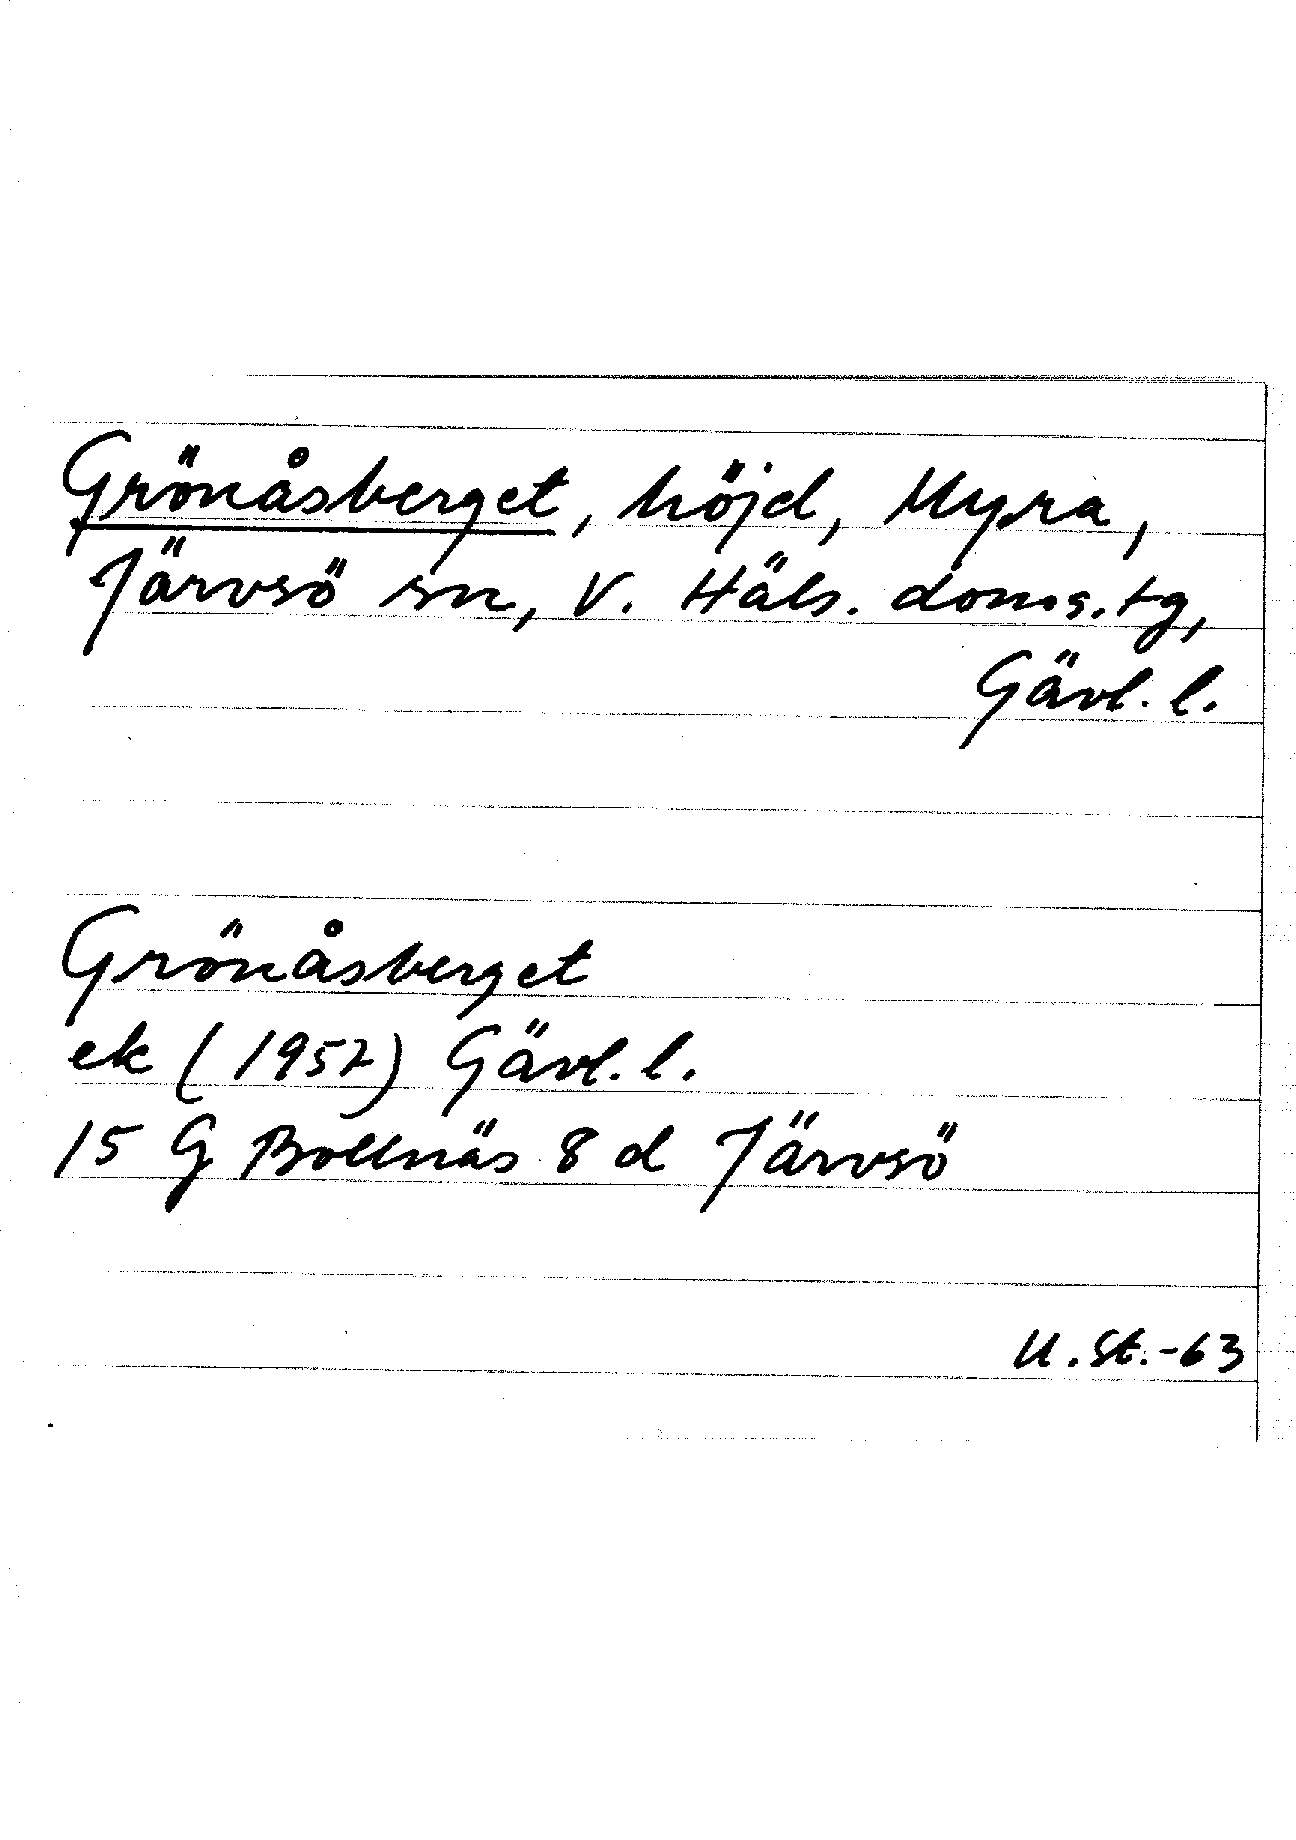 Grönåsberget, höjd, Myra,
Järvsö sn, V. Häls. doms.tg,
Gävl. l.
Grönåsberget
ek (1957) Gävl. l.
15 G Bollnäs 8 d Järvsö
U. St. -63